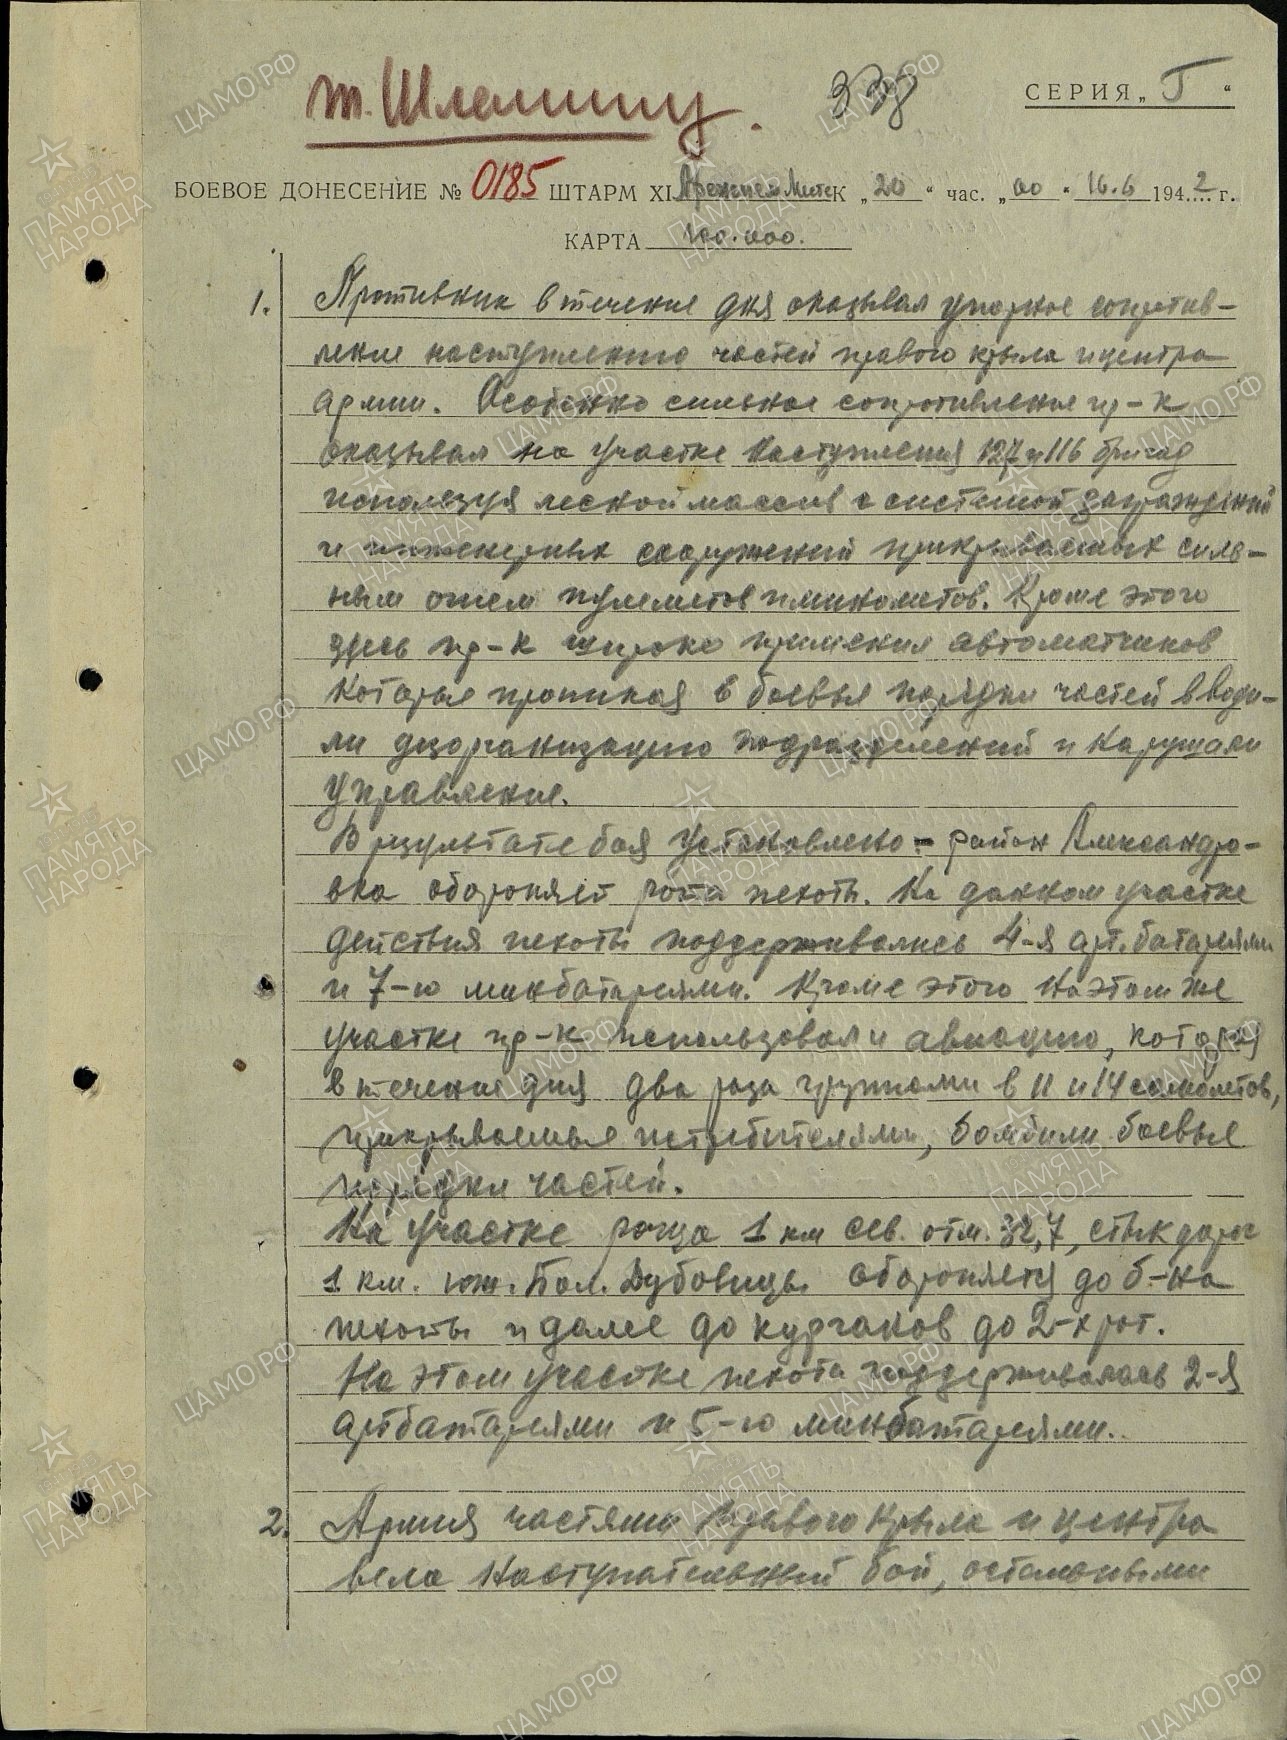 т. Шлемину.
338
СЕРИЯ „Г“
БОЕВОЕ ДОНЕСЕНИЕ № 0185 ШТАРМ XI К „20“ час. „00“ 16.6 1942 г.
КАРТА 100.000.
1. Противник в течение дня оказывал упорное сопротив-
ление наступлению частей правого крыла и центра
армии. Особенно сильное сопротивление пр-к
оказывал на участке наступления 127 и 116 бригад
используя лесной массив с системой заграждений
и инженерных сооружений прикрываемых силь-
ным огнем пулеметов и минометов. Кроме этого
здесь пр-к широко применил автоматчиков
которые проникая в боевые порядки частей вводи-
ли дезорганизацию подразделений и нарушали
управление.
В результате боя установлено - район Александро-
вка обороняет рота пехоты. На данном участке
действия пехоты поддерживались 4-я арт.батареями
и 7-ю минбатареями. Кроме этого на этом же
участке пр-к использовал и авиацию, которая
в течение дня два раза группами в 11 и 14 самолетов,
прикрываемые истребителями, бомбили боевые
порядки частей.
На участке роща 1 км сев. отм. 32,7, стык дорог
1 км. юж. Бол. Дубовицы обороняется до б-на
пехоты и далее до курганов до 2-х рот.
На этом участке пехота поддерживалась 2-я
артбатареями и 5-ю минбатареями.
2. Армия частями правого крыла и центра
вела наступательный бой, остальными
ЦАМО.РФ
ПАМЯТЬ
НАРОДА